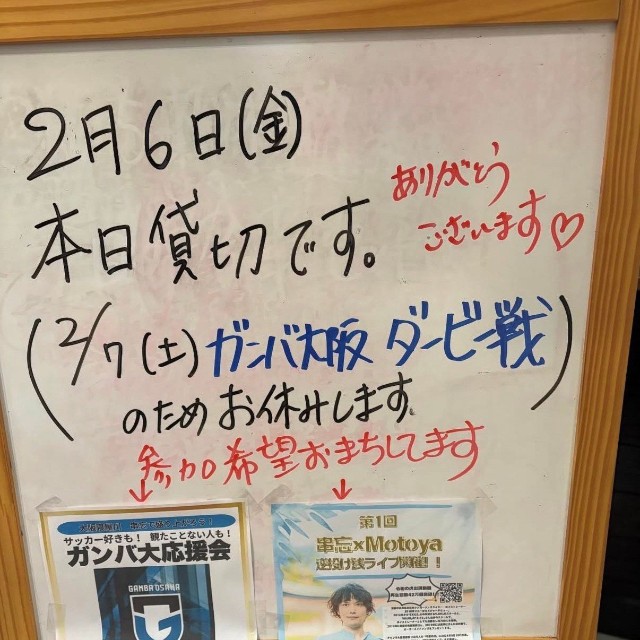 2月6日(金)
本日貸切です。
ありがとう
ございます♡
(2/7(土)ガンバ大阪 ダービー戦)
のためお休みします。
参加希望おまちしてます
↓ ↓
サッカー好きも！観たことない人も！
ガンバ大応援会
GAMBA OSAKA
第1回
串忘×Motoya